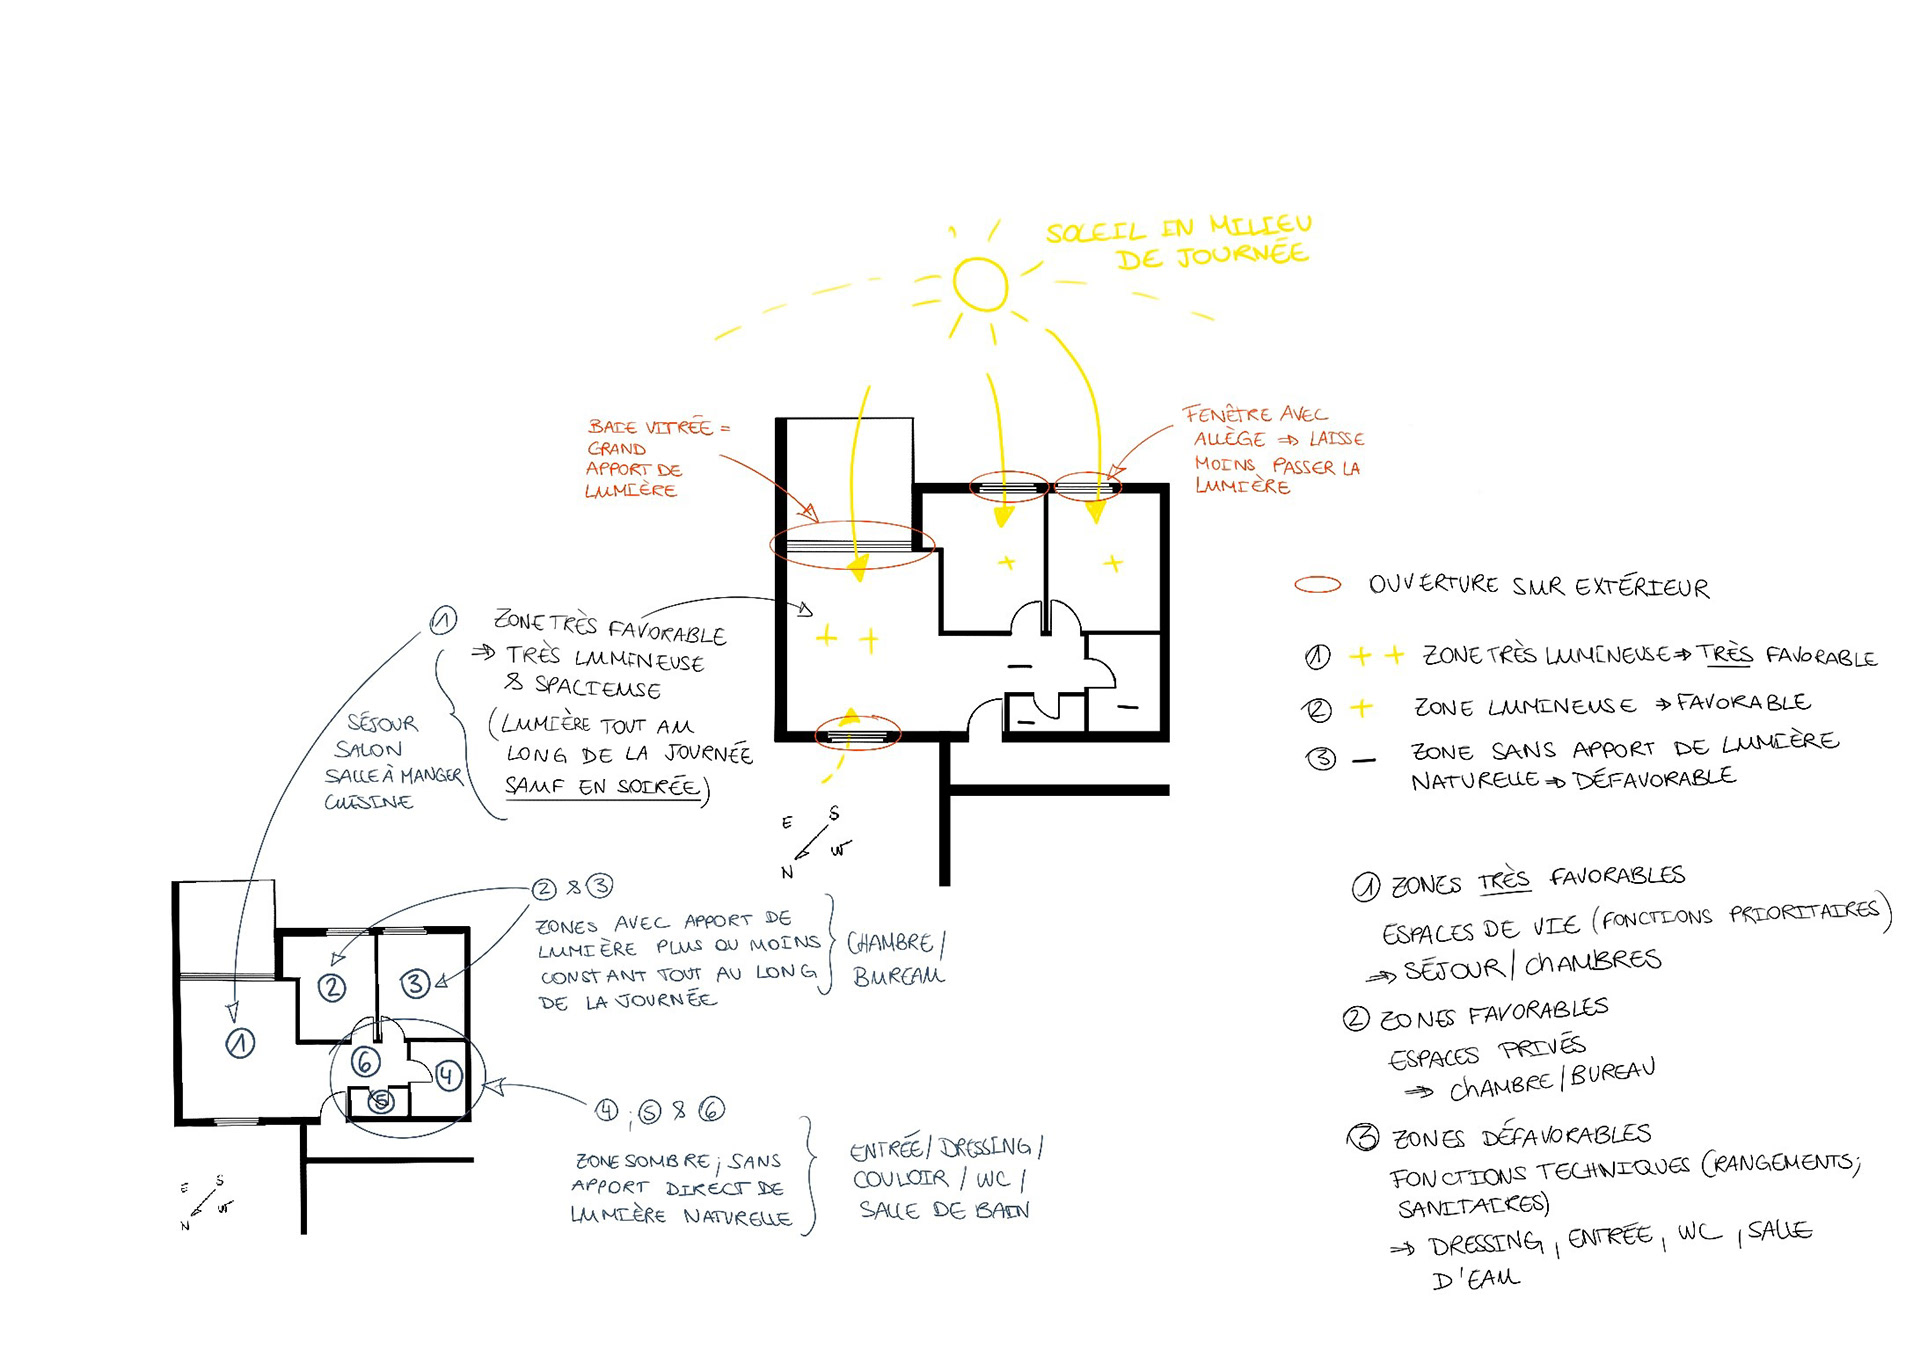 SOLEIL EN MILIEU
DE JOURNÉE
BAIE VITRÉE =
GRAND
APPORT DE
LUMIÈRE
FENÊTRE AVEC
ALLÈGE => LAISSE
MOINS PASSER LA
LUMIÈRE
OUVERTURE SUR EXTÉRIEUR
① + + ZONE TRÈS LUMINEUSE => TRÈS FAVORABLE
② + ZONE LUMINEUSE => FAVORABLE
③ - ZONE SANS APPORT DE LUMIÈRE
NATURELLE => DÉFAVORABLE
① ZONE TRÈS FAVORABLE
=> TRÈS LUMINEUSE
& SPACIEUSE
(LUMIÈRE TOUT AU
LONG DE LA JOURNÉE
SAUF EN SOIRÉE)
SÉJOUR
SALON
SALLE À MANGER
CUISINE
+ +
+
+
-
-
-
E S
N W
② & ③
ZONES AVEC APPORT DE
LUMIÈRE PLUS OU MOINS
CONSTANT TOUT AU LONG
DE LA JOURNÉE
CHAMBRE /
BUREAU
①
②
③
⑥
④
⑤
E S
N W
④ ; ⑤ & ⑥
ZONE SOMBRE ; SANS
APPORT DIRECT DE
LUMIÈRE NATURELLE
ENTRÉE / DRESSING /
COULOIR / WC /
SALLE DE BAIN
① ZONES TRÈS FAVORABLES
ESPACES DE VIE (FONCTIONS PRIORITAIRES)
=> SÉJOUR / CHAMBRES
② ZONES FAVORABLES
ESPACES PRIVÉS
=> CHAMBRE / BUREAU
③ ZONES DÉFAVORABLES
FONCTIONS TECHNIQUES (RANGEMENTS ;
SANITAIRES)
=> DRESSING, ENTRÉE, WC, SALLE
D'EAU